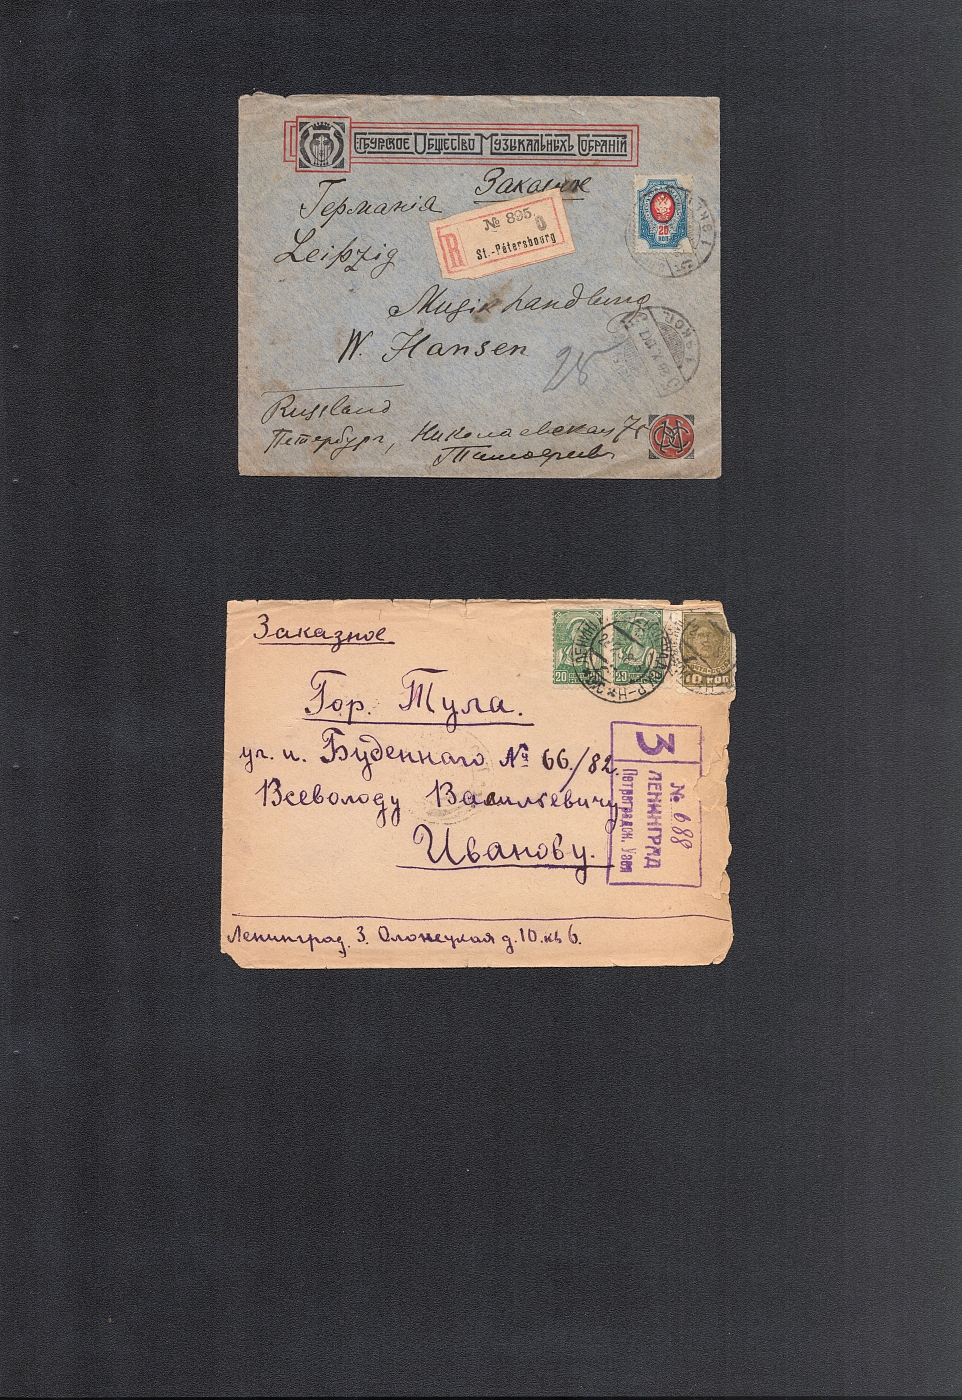 СПБУРСКОЕ ОБЩЕСТВО МУЗЫКАЛЬНЫХЪ СОБРАНІЙ
Заказное
Германія
R № 895
St.-Pétersbourg
Leipzig
20
КОП
Musikhandlung
W. Hansen
Russland
Петербургъ, Николаевская 75
Тимофеев
Заказное
20
20
10 КОП
Гор. Тула.
ул. и. Буденнаго № 66./82.
Всеволоду Васильевичу
Иванову.
З
№ 688
ЛЕНИНГРАД
Петроградск. Узел
Ленинград. 3. Олонецкая д. 10. кв 6.